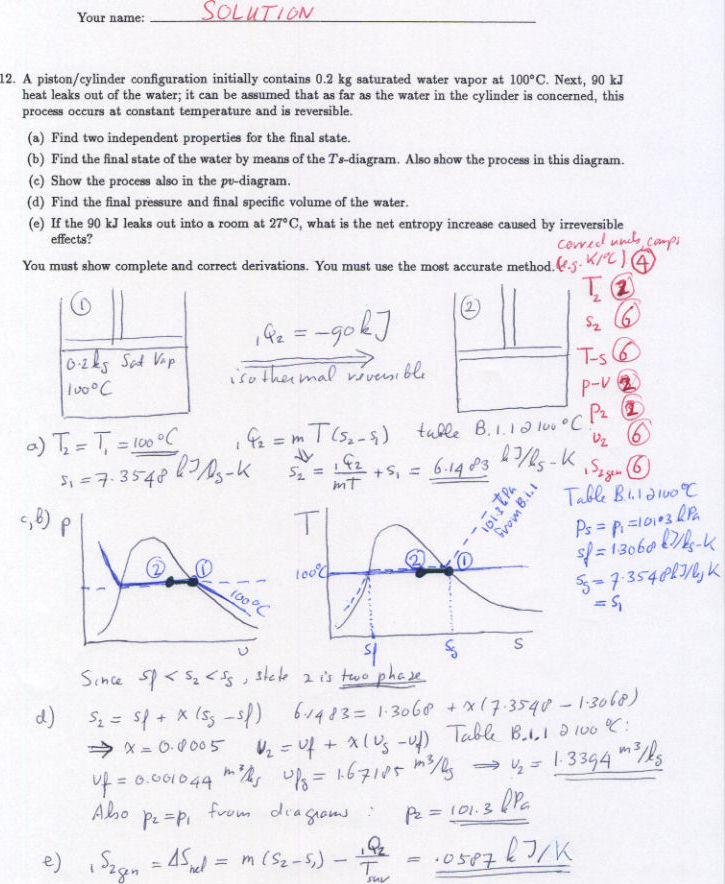 Your name: SOLUTION
12. A piston/cylinder configuration initially contains 0.2 kg saturated water vapor at 100°C. Next, 90 kJ
heat leaks out of the water; it can be assumed that as far as the water in the cylinder is concerned, this
process occurs at constant temperature and is reversible.
(a) Find two independent properties for the final state.
(b) Find the final state of the water by means of the Ts-diagram. Also show the process in this diagram.
(c) Show the process also in the pv-diagram.
(d) Find the final pressure and final specific volume of the water.
(e) If the 90 kJ leaks out into a room at 27°C, what is the net entropy increase caused by irreversible
effects?
You must show complete and correct derivations. You must use the most accurate method.
correct units, comps
(e.g. K/°C) ④
T₂ ②
s₂ ⑥
T-s ⑥
p-v ②
p₂ ②
v₂ ⑥
₁S₂gen ⑥
①
0.2 kg Sat Vap
100°C
₁Q₂ = -90 kJ
isothermal reversible
②
a) T₂ = T₁ = 100°C ₁Q₂ = m T(s₂ - s₁) table B.1.1 @ 100°C:
s₁ = 7.3548 kJ/kg-K ⇓ s₂ = ₁Q₂/mT + s₁ = 6.1483 kJ/kg-K
Table B.1.1 @ 100°C
Ps = P₁ = 101.3 kPa
sf = 1.3068 kJ/kg-K
sg = 7.3548 kJ/kg K
= s₁
c,b) p
② ①
100°C
v
T
101.3 kPa
from B.1.1
100°C
② ①
sf sg s
Since sf < s₂ < sg, state 2 is two phase
d) s₂ = sf + x (sg - sf) 6.1483 = 1.3068 + x (7.3548 - 1.3068)
⇒ x = 0.8005 v₂ = vf + x(vg - vf) Table B.1.1 @ 100°C:
vf = 0.001044 m³/kg vfg = 1.67185 m³/kg ⇒ v₂ = 1.3394 m³/kg
Also p₂ = p₁ from diagrams : p₂ = 101.3 kPa
e) ₁S₂gen = ΔSnet = m (s₂ - s₁) - ₁Q₂/Tsur = .0587 kJ/K